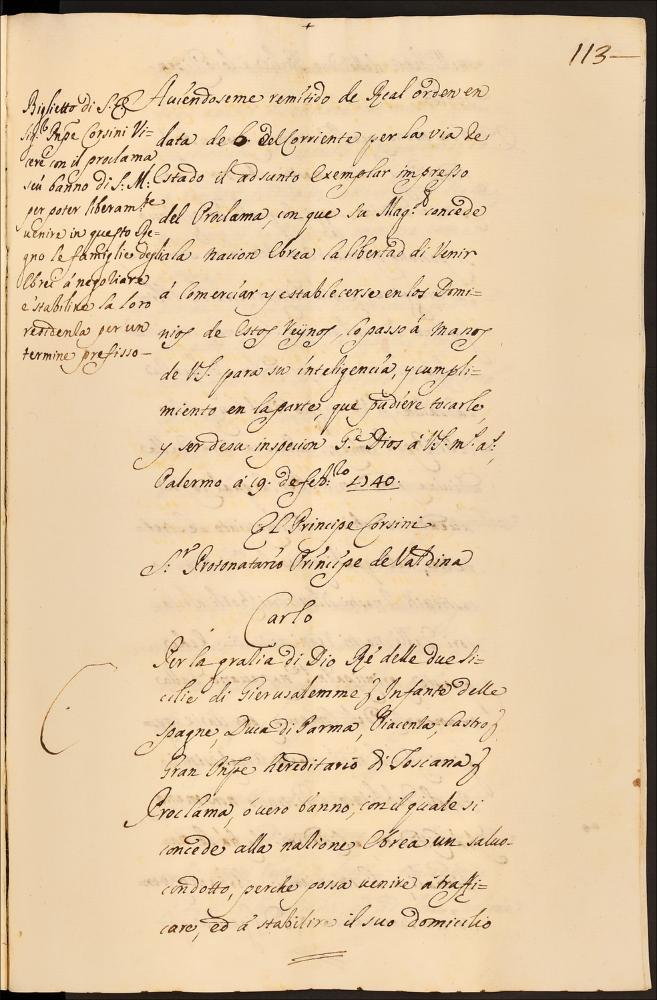 113
Biglietto di S. E.
Sig.r Pnpe Corsini Vi-
cerè con il proclama
seu banno di S: M:
per poter liberam.te
venire in questo Re-
gno le famiglie degli
Ebrei à negoziare
e stabilire la loro
residenza per un
termine prefisso-
Auiéndoseme remitido de Real orden en
data de 6 del Corriente per la via de
Estado il adjunto Exemplar impresso
del Proclama, con que su Mag.d concede
a la nacion Ebrea la libertad di Venir
á Comerciar y establecerse en los Domi=
nios de Estos Reynos, lo passo à manos
de VS. para su inteligencia, y cumpli=
miento en la parte, que pudiere tocarle,
y ser de su inspecion G.e Dios á VS. m.s a.s,
Palermo á 19. de feb.ro 1740.
El Principe Corsini
S.r Protonatario Principe de Valdina
Carlo
Per la gratia di Dio Rè delle due Si=
cilie di Gierusalemme Infante delle
Spagne, Duca di Parma, Piacenza, Castro
Gran Pnpe hereditario di Toscana
Proclama, ó uero banno, con il quale si
concede alla natione Ebrea un saluo-
condotto, perche possa venire á traffi=
care, ed á stabilire il suo domicilio